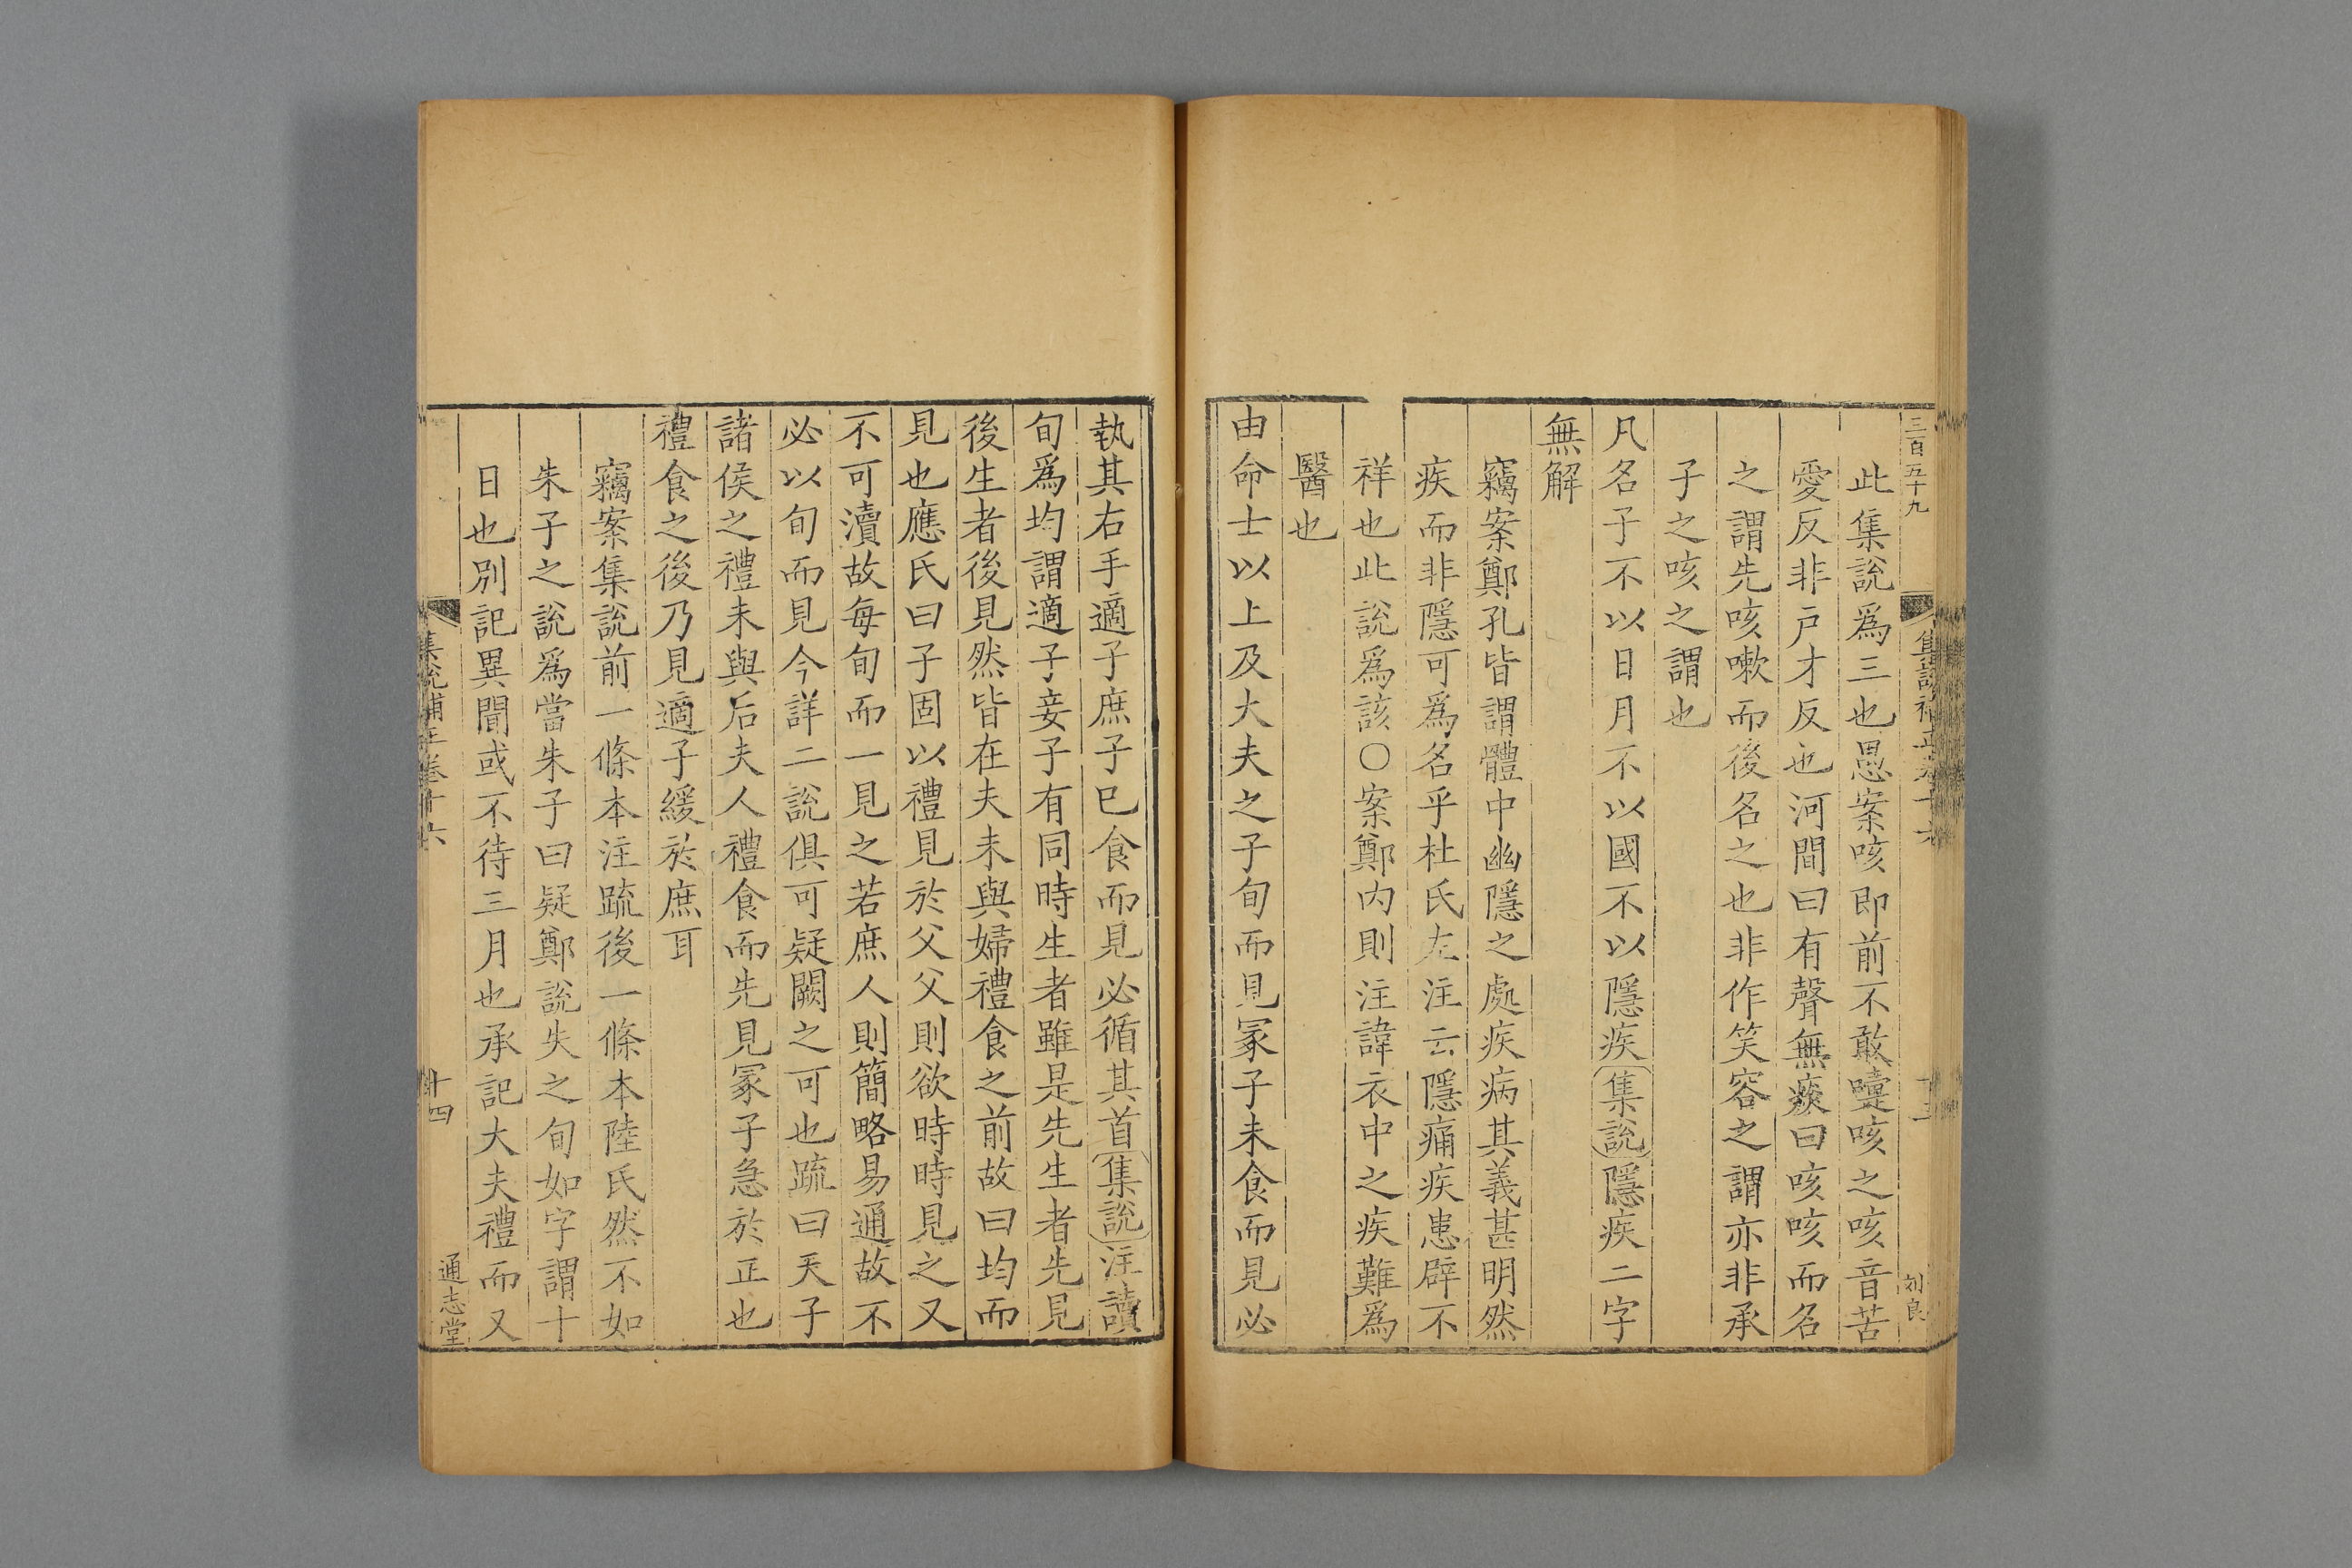 三百五十九
此集説爲三也愚案咳即前不敢嚏咳之咳音苦
愛反非戸才反也河間曰有聲無痰曰咳咳而名
之謂先咳嗽而後名之也非作笑容之謂亦非承
子之咳之謂也
凡名子不以日月不以國不以隱疾集説隱疾二字
無解
竊案鄭孔皆謂體中幽隱之處疾病其義甚明然
疾而非隱可爲名乎杜氏左注云隱痛疾患辟不
祥也此説爲該○案鄭内則注諱衣中之疾難爲
醫也
由命士以上及大夫之子旬而見冢子未食而見必
刘良
執其右手適子庶子已食而見必循其首集説注讀
旬爲均謂適子妾子有同時生者雖是先生者先見
後生者後見然皆在夫未與婦禮食之前故曰均而
見也應氏曰子固以禮見於父父則欲時時見之又
不可瀆故每旬而一見之若庶人則簡略易通故不
必以旬而見今詳二説俱可疑闕之可也疏曰天子
諸侯之禮未與后夫人禮食而先見冢子急於正也
禮食之後乃見適子緩於庶耳
竊案集説前一條本注疏後一條本陸氏然不如
朱子之説爲當朱子曰疑鄭説失之旬如字謂十
日也別記異聞或不待三月也承記大夫禮而又
集說補正卷十六
十四
通志堂